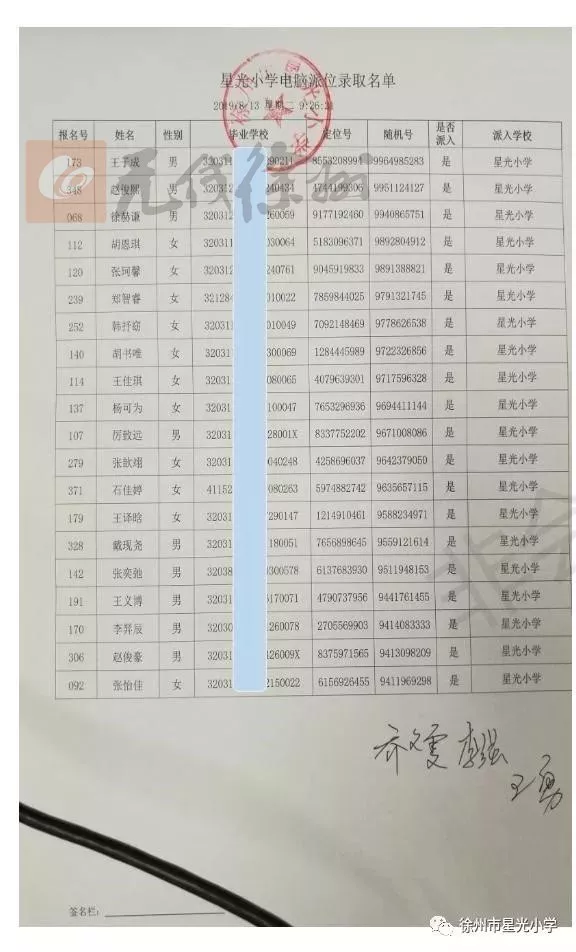 星光小学电脑派位录取名单
2019/8/13 星期二 9:26:21
报名号 姓名 性别 毕业学校 定位号 随机号 是否派入 派入学校
173 王子成 男 320311 090211 8553208994 9964985283 是 星光小学
348 赵俊熙 男 320312 240434 4744199306 9951124127 是 星光小学
068 徐赫谦 男 320312 260059 9177192460 9940865751 是 星光小学
112 胡恩琪 女 320311 030064 5183096371 9892804912 是 星光小学
120 张珂馨 女 320312 240761 9045919833 9891388821 是 星光小学
239 郑智睿 女 321284 010022 7859844025 9791321745 是 星光小学
252 韩抒窈 女 320311 010049 7092148469 9778626538 是 星光小学
140 胡书唯 女 320311 300069 1284445989 9722326856 是 星光小学
114 王佳琪 女 320311 080065 4079639301 9717596328 是 星光小学
137 杨可为 女 32031 100047 7653296936 9694411144 是 星光小学
107 厉致远 男 32031 28001X 8337752202 9671008086 是 星光小学
279 张歆翊 女 32031 040248 4258696037 9642379050 是 星光小学
371 石佳婷 女 41152 080263 5974882742 9635657115 是 星光小学
179 王译晗 女 32031 290147 1214910461 9588234971 是 星光小学
328 戴现尧 男 32031 180051 7656898645 9559121614 是 星光小学
142 张奕弛 男 32038 300578 6137683930 9511948153 是 星光小学
191 王义博 男 32031 6170071 4790737956 9441761455 是 星光小学
170 李羿辰 男 32030 1260078 2705569903 9414083333 是 星光小学
306 赵俊豪 男 32031 126009X 8375971565 9413098209 是 星光小学
092 张怡佳 女 32031 2150022 6156926455 9411969298 是 星光小学
王勇
签名栏:
无线徐州
徐州市星光小学